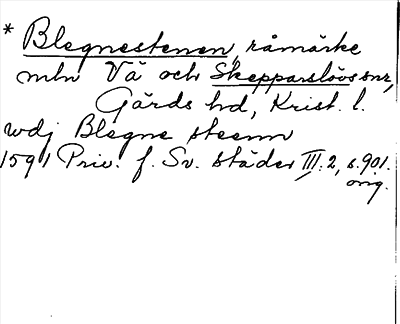 * Blegnestenen, råmärke
mln Vä och Skepparslövs snr,
Gärds hd, Krist. l.
wdj Blegne steenn
1591 Priv. f. Sv. städer III:2, s. 901.
orig.